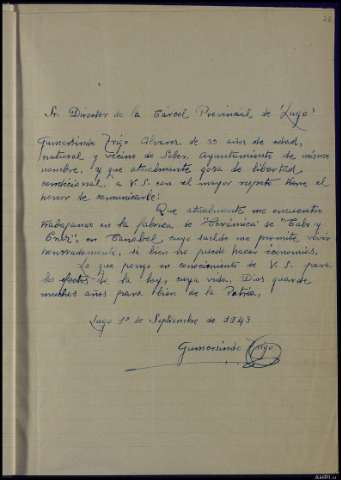 Sr. Director de la Carcel Provincial de "Lugo"
Gumersindo Trigo Alvarez de 39 años de edad,
natural y vecino de Sober, Ayuntamiento de mismo
nombre, y que atualmente goza de libertad
condicional, a V.S. con el mayor respeto tiene el
honor de comunicarle:
Que atualmente me encuentro
trabajando en la fabrica de "Cerámica" de
en cuyo sueldo me permite vivir
honradamente, si bien no puedo hacer economias.
Lo que pongo en conocimiento de V.S. para
los efectos de la ley, cuya vida, Dios guarde
muchos años para bien de la Patria.
Lugo 1º de Septiembre de 1943
Gumersindo Trigo